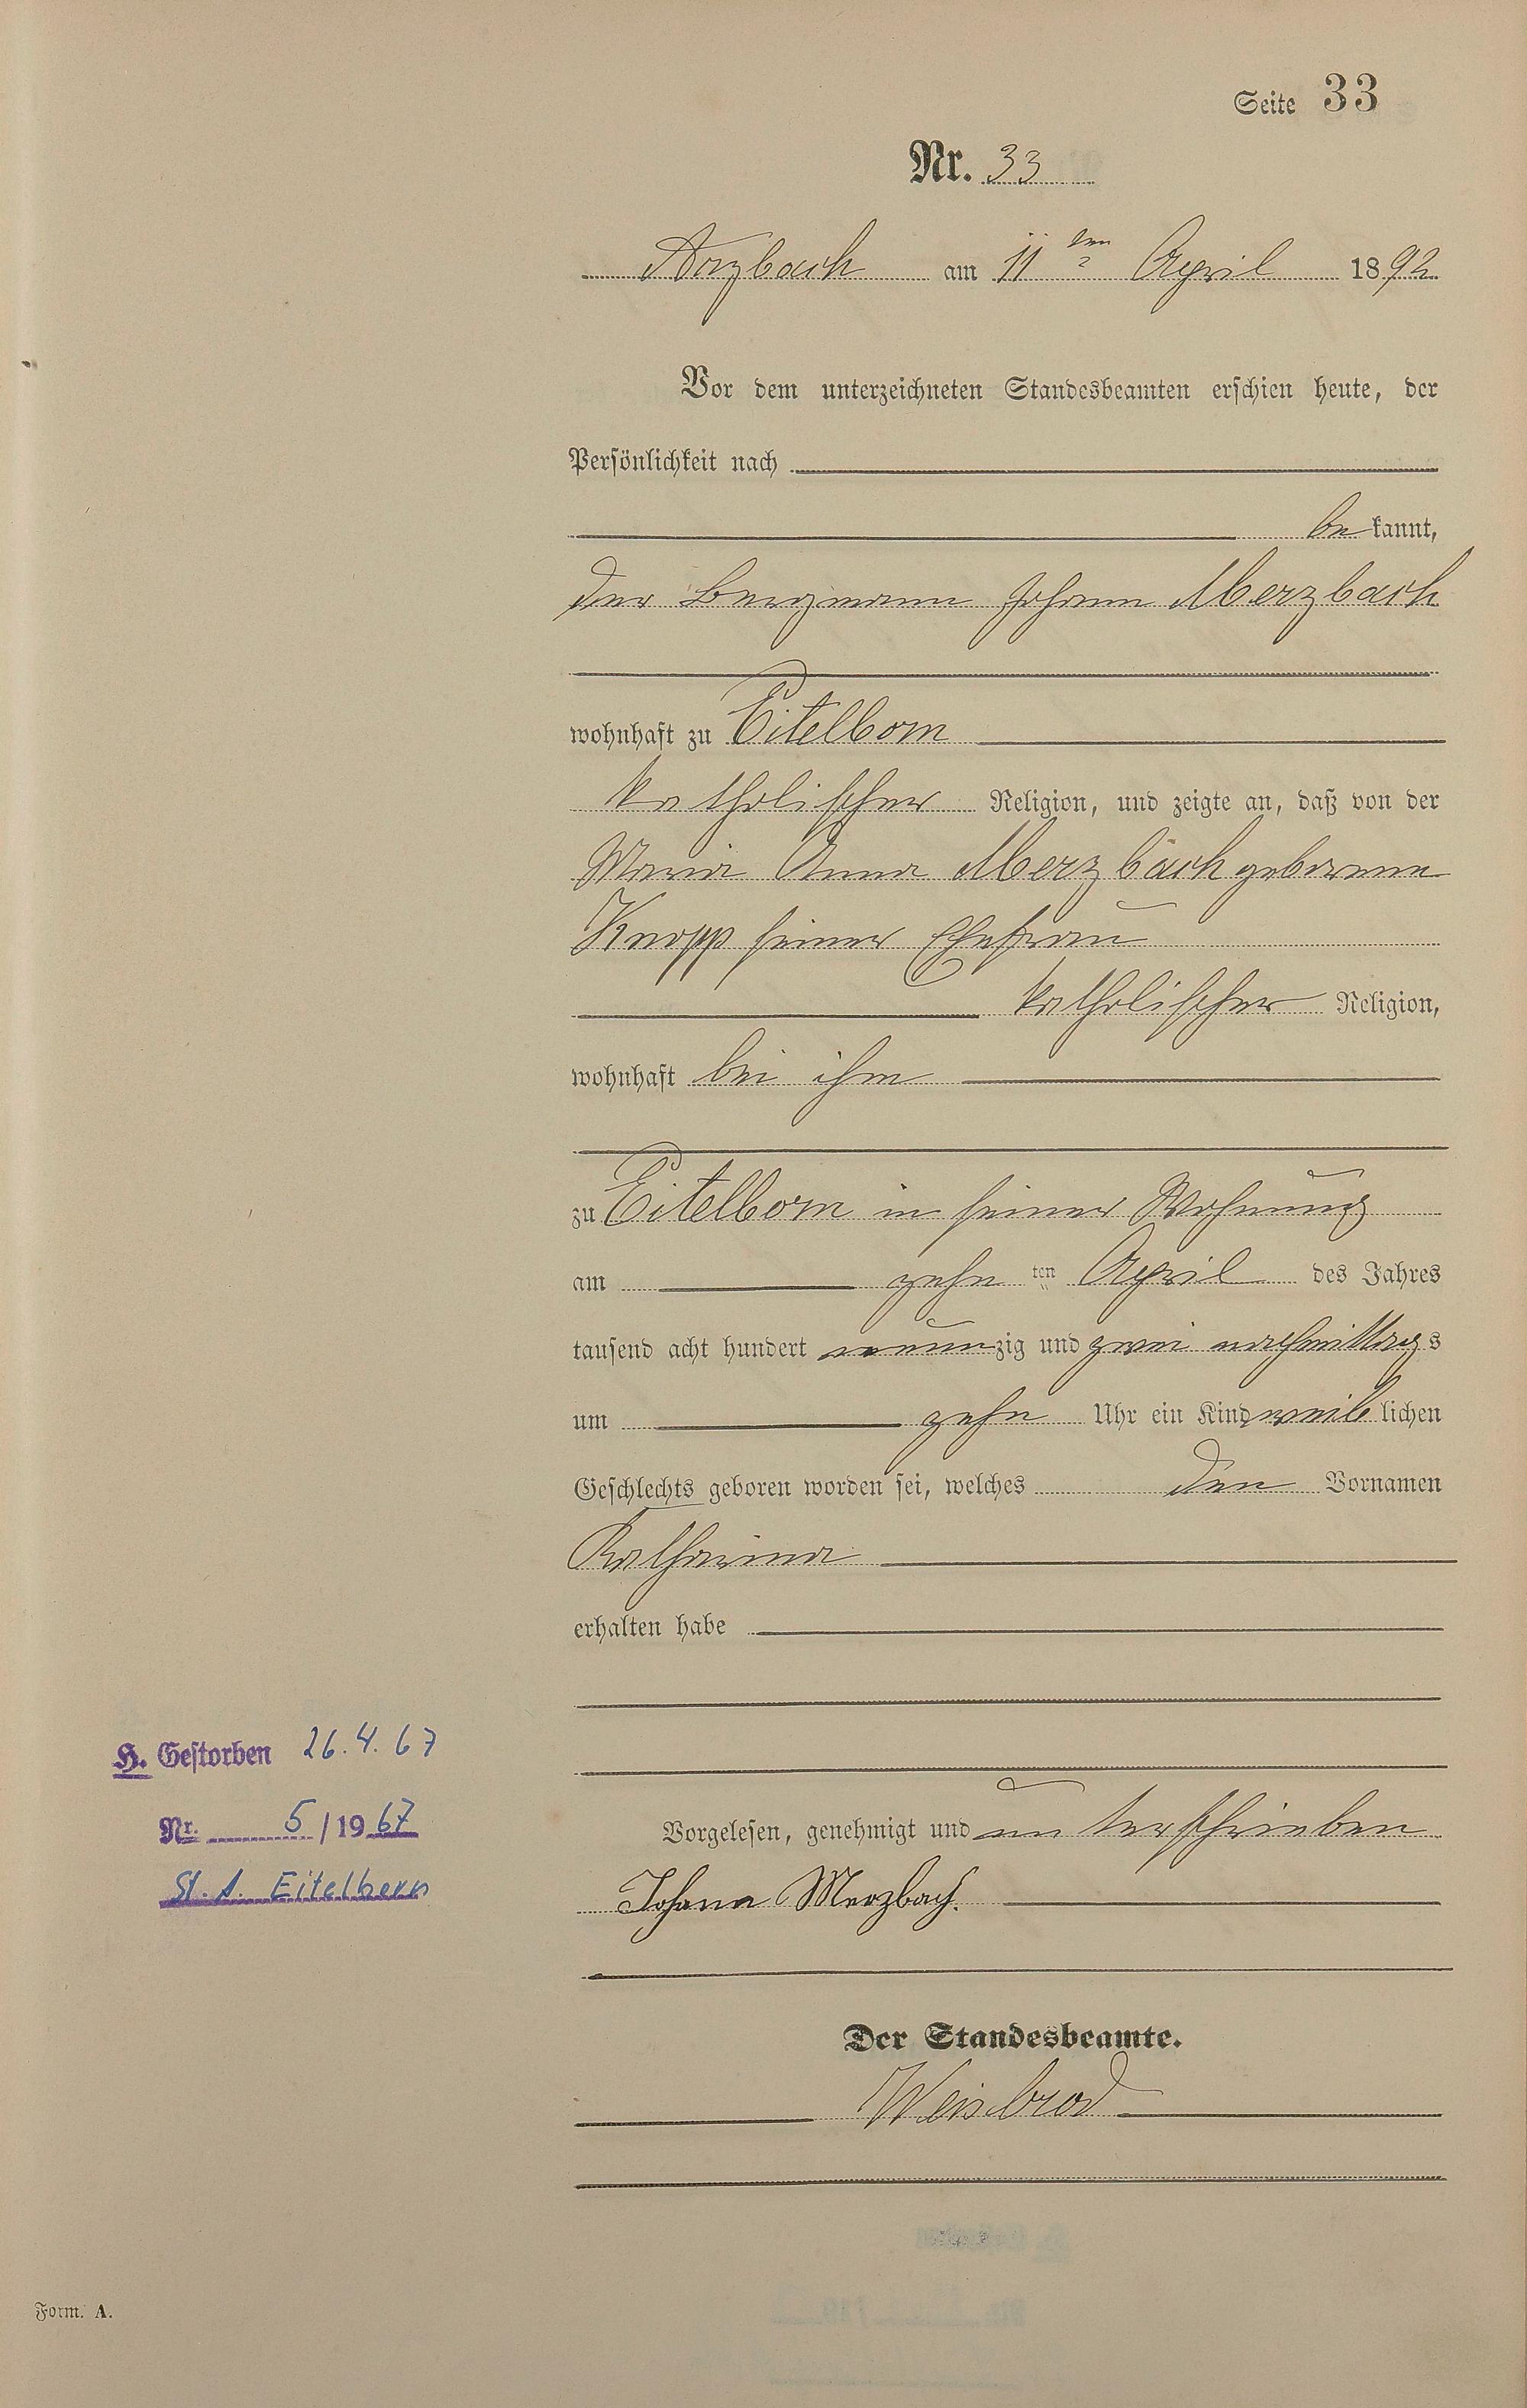 Seite 33
Nr. 33
Arzbach am 11ten April 1892
Vor dem unterzeichneten Standesbeamten erschien heute, der
Persönlichkeit nach
bekannt,
der Bergmann Johann Merzbach
wohnhaft zu Eitelborn
katholischer Religion, und zeigte an, daß von der
Maria Anna Merzbach geborenen
Knopp seiner Ehefrau
katholischer Religion,
wohnhaft bei ihm
zu Eitelborn in seiner Wohnung
am zehn ten April des Jahres
tausend acht hundert neunzig und zwei nachmittags
um zehn Uhr ein Kind weiblichen
Geschlechts geboren worden sei, welches den Vornamen
Katharina
erhalten habe
H. Gestorben 26.4.67
Nr. 5/1967
St. A. Eitelborn
Vorgelesen, genehmigt und unterschrieben
Johann Merzbach.
Der Standesbeamte.
Weisbrod
Form. A.